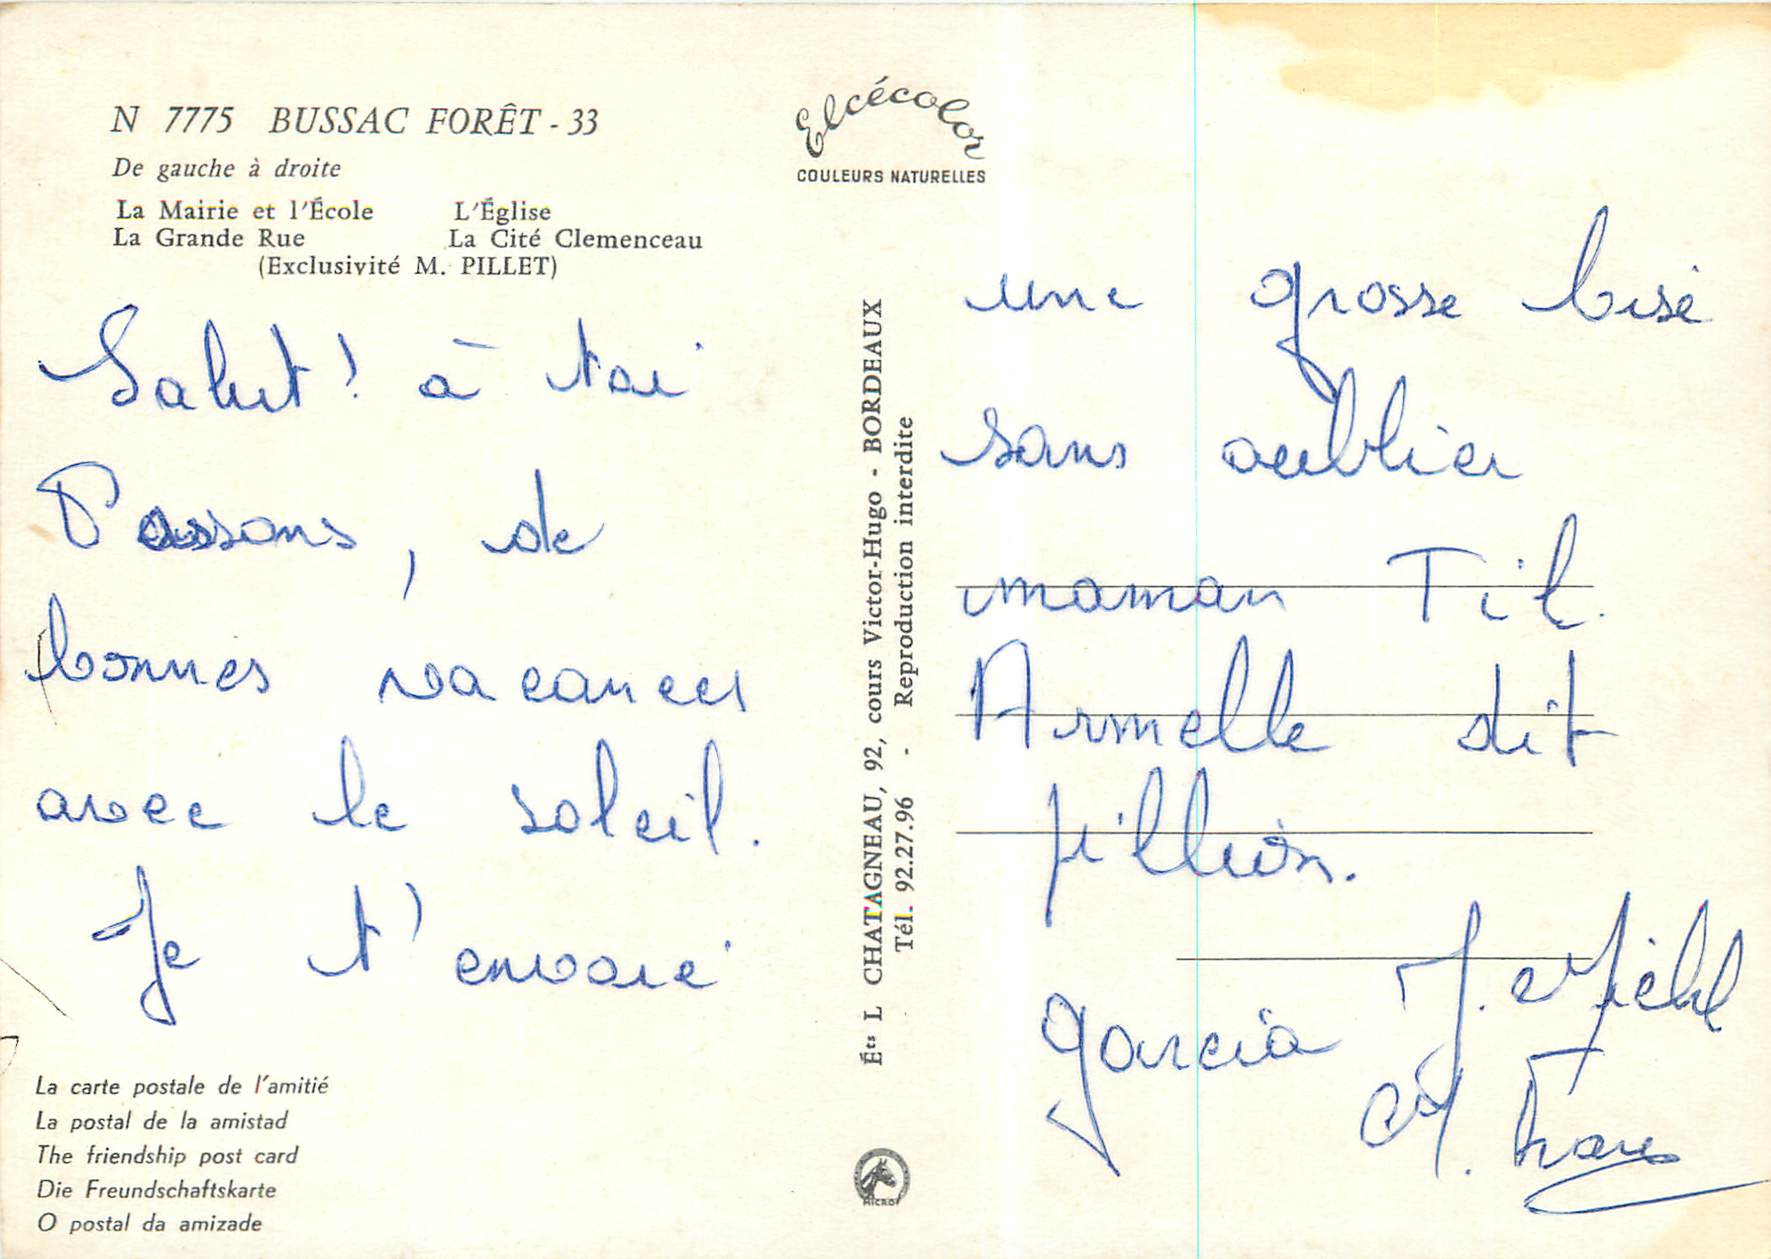 N 7775 BUSSAC FORÊT - 33
De gauche à droite
La Mairie et l'École L'Église
La Grande Rue La Cité Clemenceau
(Exclusivité M. PILLET)
Salut! à toi
Possons, de
bonnes vacances
avec le soleil.
Je t'envoie
La carte postale de l'amitié
La postal de la amistad
The friendship post card
Die Freundschaftskarte
O postal da amizade
Elcécolor
COULEURS NATURELLES
Éts L CHATAGNEAU, 92, cours Victor-Hugo - BORDEAUX
Tél. 92.27.96 - Reproduction interdite
MICRO
une grosse bise
sans oublier
maman Til.
Armelle dit
pillion.
garcia J. Michel